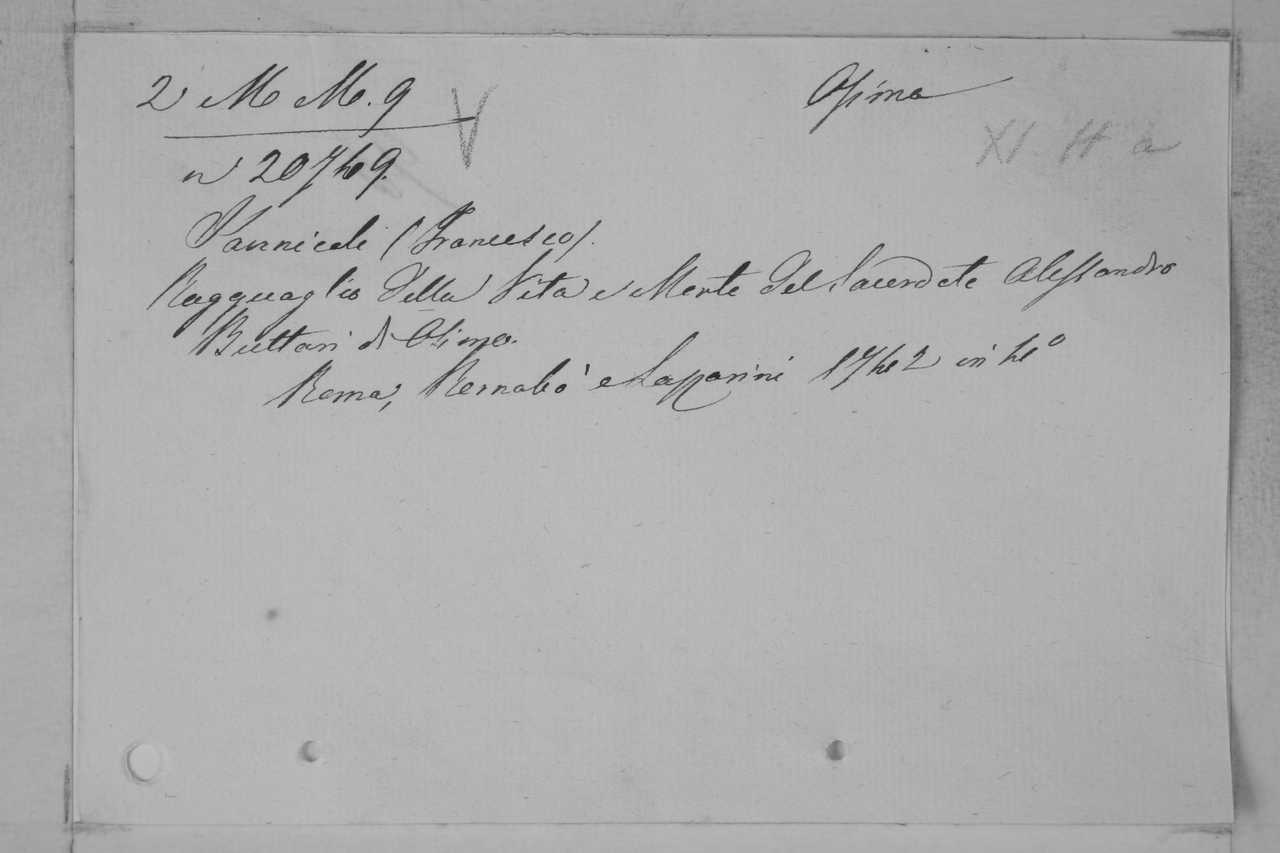 2 M M. 9
Osimo
XI H a
n 20749.
Vannicoli (Francesco).
Ragguaglio della Vita e Morte del Sacerdote Alessandro
Buttari di Osimo.
Roma, Bernabò e Lazzarini 1742 in 4º